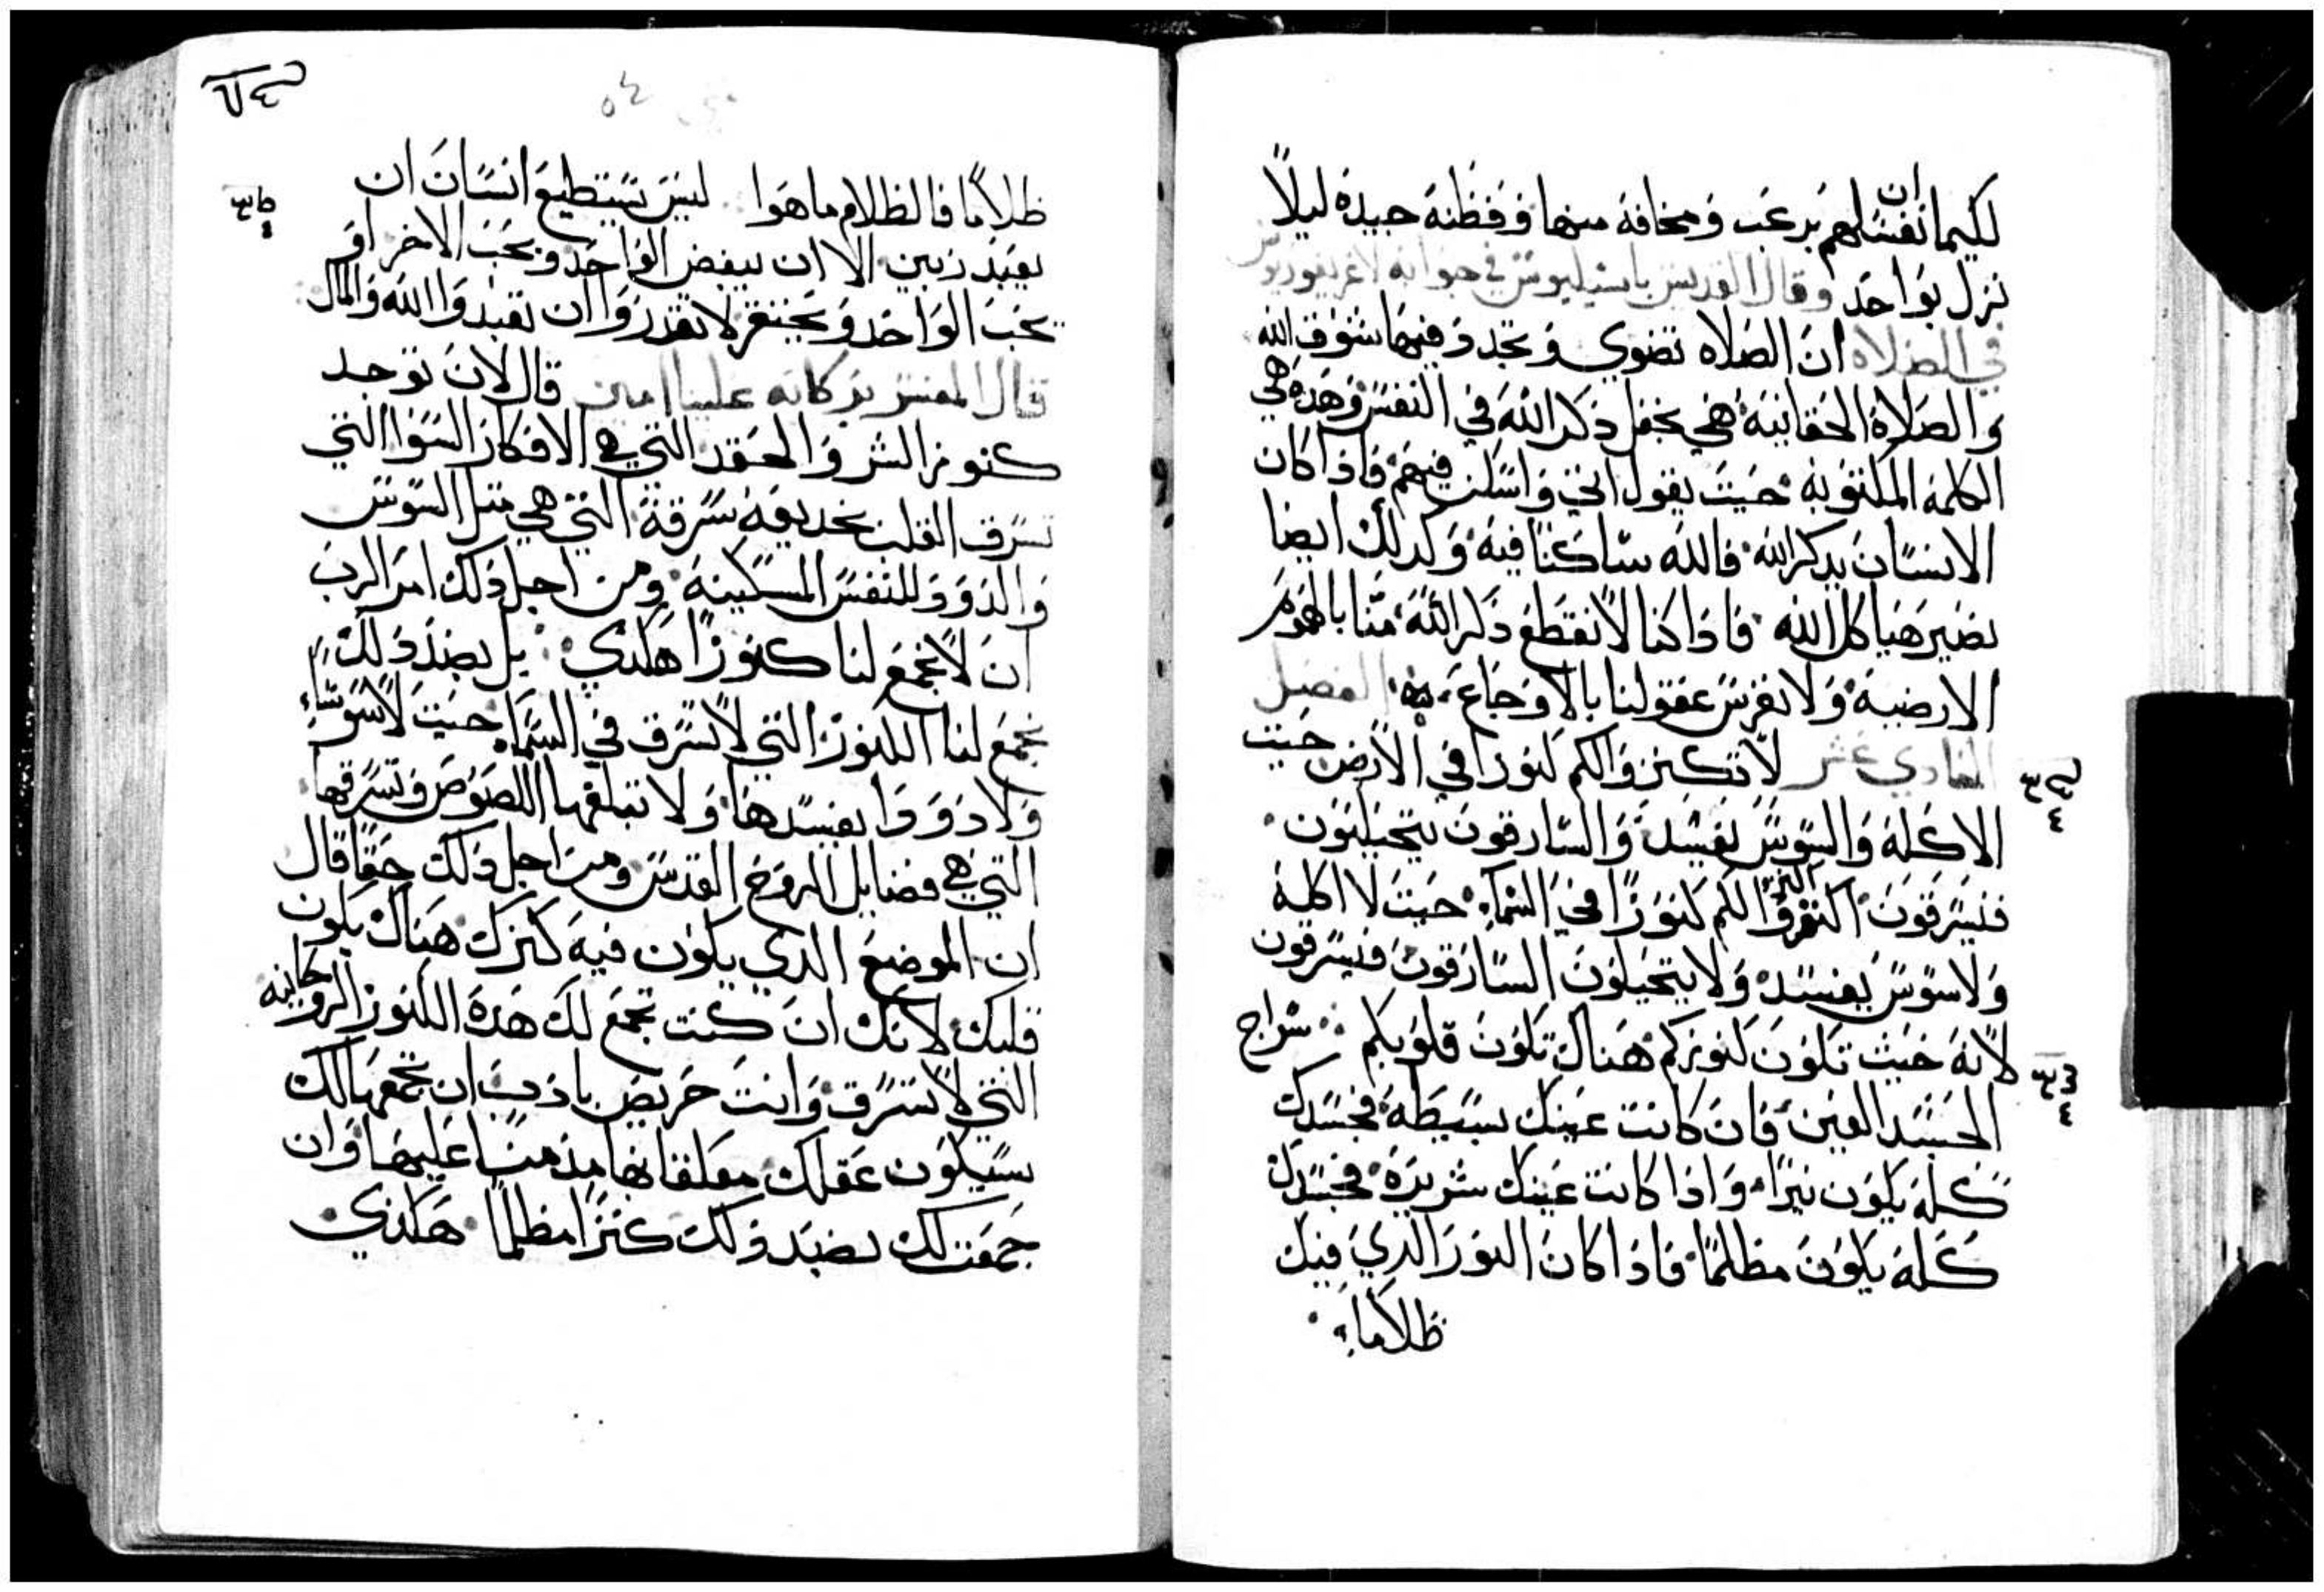 لكيما ان نفسلهم برعب ومخافة منها وفظنه جيده ليلا
نزل بواحد وقال القديس باسيليوس في جوابه لاغريغوريوس
في الصلاه ان الصلاه تضوي وتجدد فيها شوق الله
والصلاة الحقانية هي بجعل ذكر الله في النفس وهده هي
الكلمة المكتوبة حيث يقول اني واسكن فيهم فاذا كان
الانسان يدكر الله فالله ساكنا فيه وكدلك ايضا
نصير هياكل الله فاذا كنا لا نقطع ذكر الله منا بالهموم
الارضية ولا نفرس عقولنا بالاوجاع الفصل
الحادي عشر لا تكنزوا لكم كنوزا في الارض حيت
الاكلة والسوس يفسد والسارقون يتحيلون
فيسرقون اكنزوا لكم كنوزا في السماء حيت لا اكلة
ولا سوس يفسد ولا يتحيلون السارقون فيسرقون
لانه حيث تكون كنوزكم هناك تكون قلوبكم سراج
الجسد العين فان كانت عينك بسيطة فجسدك
كله يكون نيرا واذا كانت عينك شريرة فجسدك
كله يكون مظلما فاذا كان النور الدي فيك
ظلاما
٥٤
ظلاما فالظلام ما هوا ليس يستطيع انسان ان
يعبد ربين الا ان يبغض الواحد ويحب الاخر او
يحب الواحد ويحتقر لا تقدروا ان تعبدوا الله والمال
قال المفسر بركاته علينا امين قال لان توجد
كنوز الشر والحقد التي هي الافكار السوا التي
تسرق القلب بخديعة سرقة التي هي متل السوس
والدود للنفس المسكينة ومن اجل دلك امر الرب
ان لا نجمع لنا كنوزا هكدي بل بضد دلك
نجمع لنا الكنوز التي لا تسرق في السما حيت لا سوس
ولا دود يفسدها ولا تبلغها اللصوص وتسرقها
التي هي فضايل الروح القدس ومن اجل دلك حقا قال
ان الموضع الدي يكون فيه كنزك هناك يكون
قلبك لانك ان كنت تجمع لك هده الكنوز الروحانيه
التي لا تسرق وانت حريص باذب ان تجمعها لك
سيكون عقلك معلقا بها مدمنا عليها وان
جمعت لك بضد دلك كنزا مظلما هكدي